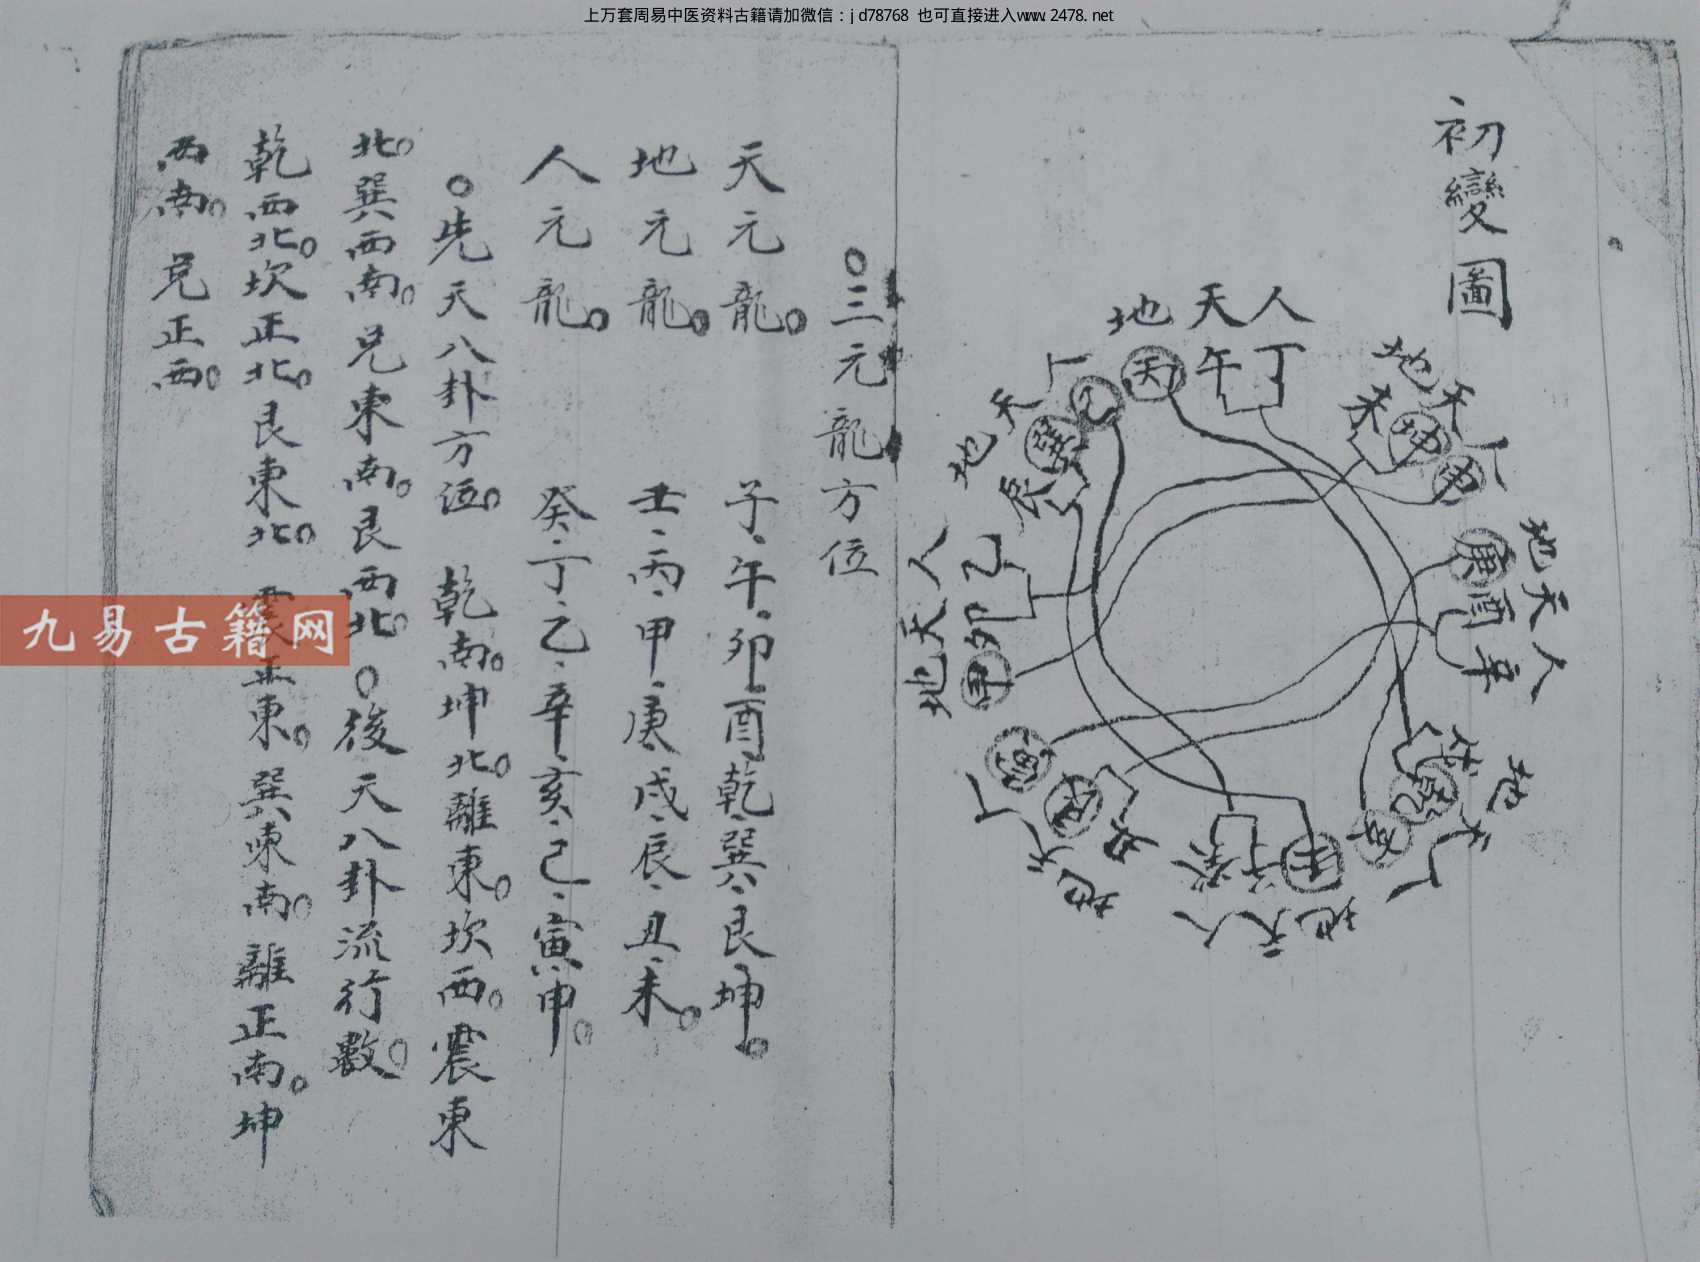 上万套周易中医资料古籍请加微信：jd78768 也可直接进入www.2478.net
初變圖
地天人
丙午丁
地天人
未坤申
地天人
庚酉辛
地天人
戌乾亥
地天人
壬子癸
地天人
丑艮寅
地天人
甲卯乙
地天人
辰巽巳
○三元龍方位
天元龍。 子、午、卯、酉、乾、巽、艮、坤。
地元龍。 壬、丙、甲、庚、戌、辰、丑、未。
人元龍。 癸、丁、乙、辛、亥、巳、寅、申。
○先天八卦方位。 乾南。坤北。離東。坎西。震東
北。巽西南。兌東南。艮西北。○後天八卦流行數。
乾西北。坎正北。艮東北。震正東。巽東南。離正南。坤
西南。兌正西。
九易古籍网